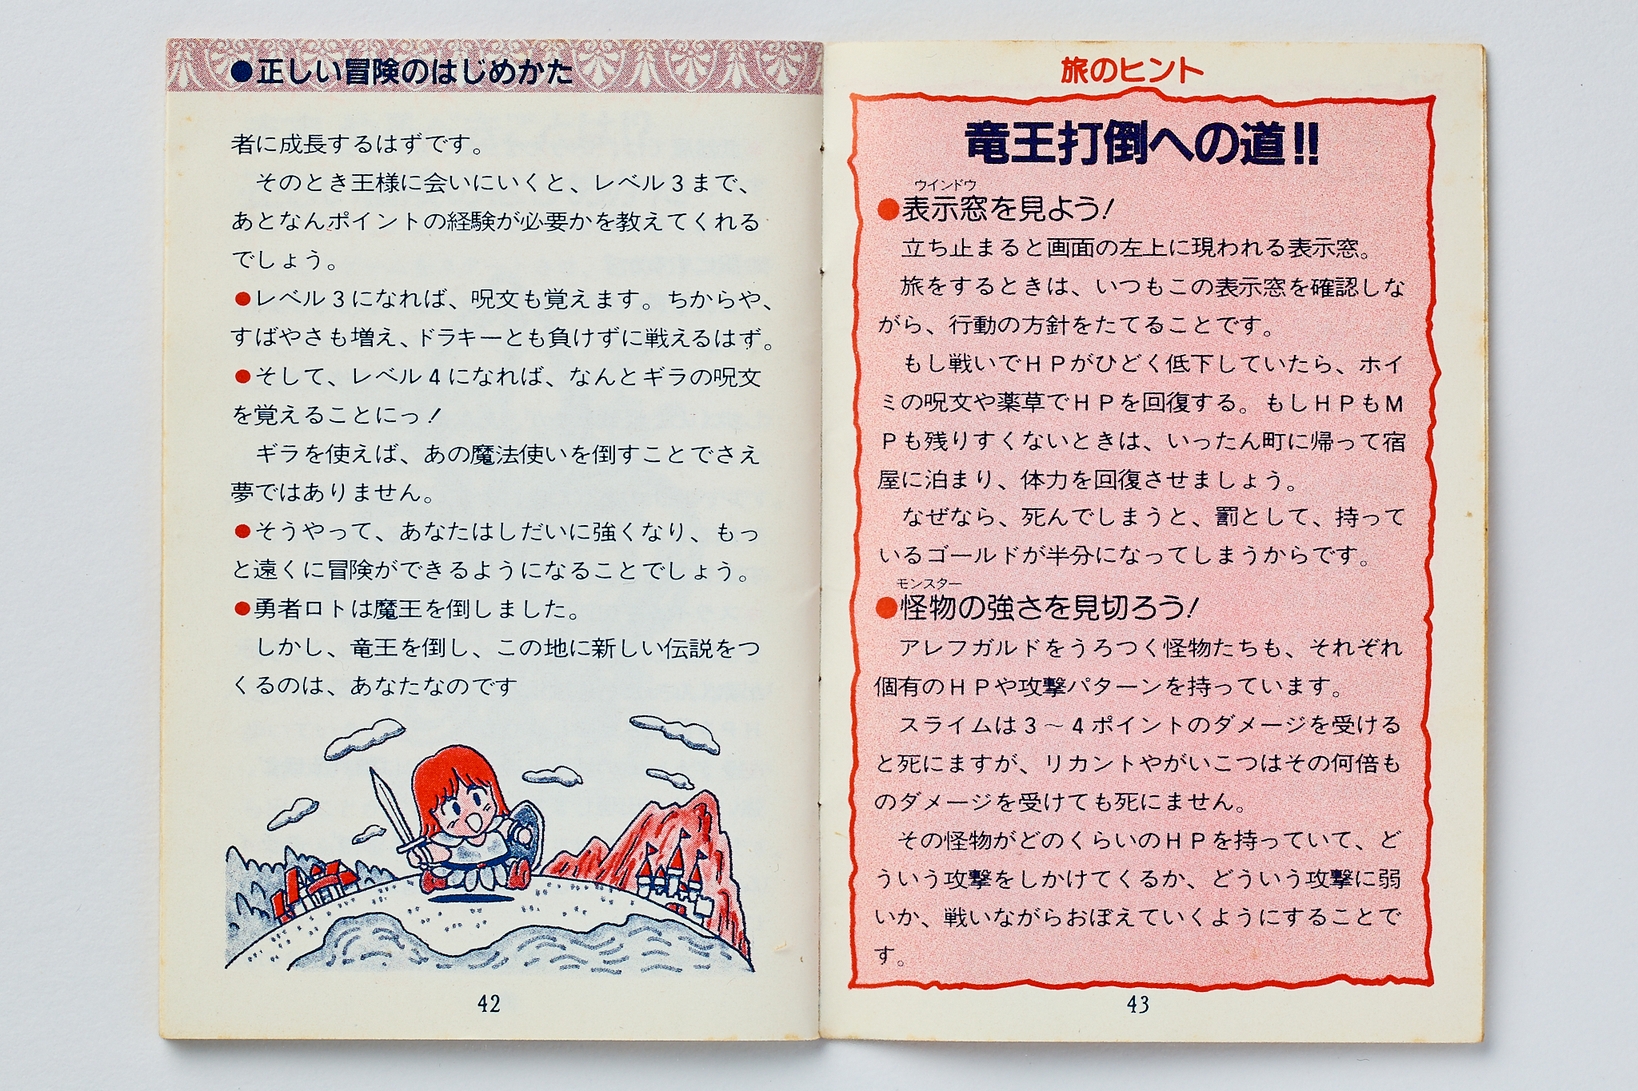 ●正しい冒険のはじめかた
者に成長するはずです。
　そのとき王様に会いにいくと、レベル３まで、
あとなんポイントの経験が必要かを教えてくれる
でしょう。
●レベル３になれば、呪文も覚えます。ちからや、
すばやさも増え、ドラキーとも負けずに戦えるはず。
●そして、レベル４になれば、なんとギラの呪文
を覚えることにっ！
　ギラを使えば、あの魔法使いを倒すことでさえ
夢ではありません。
●そうやって、あなたはしだいに強くなり、もっ
と遠くに冒険ができるようになることでしょう。
●勇者ロトは魔王を倒しました。
　しかし、竜王を倒し、この地に新しい伝説をつ
くるのは、あなたなのです
42
旅のヒント
竜王打倒への道!!
ウインドウ
●表示窓を見よう！
　立ち止まると画面の左上に現われる表示窓。
　旅をするときは、いつもこの表示窓を確認しな
がら、行動の方針をたてることです。
　もし戦いでＨＰがひどく低下していたら、ホイ
ミの呪文や薬草でＨＰを回復する。もしＨＰもＭ
Ｐも残りすくないときは、いったん町に帰って宿
屋に泊まり、体力を回復させましょう。
　なぜなら、死んでしまうと、罰として、持って
いるゴールドが半分になってしまうからです。
モンスター
●怪物の強さを見切ろう！
　アレフガルドをうろつく怪物たちも、それぞれ
個有のＨＰや攻撃パターンを持っています。
　スライムは３～４ポイントのダメージを受ける
と死にますが、リカントやがいこつはその何倍も
のダメージを受けても死にません。
　その怪物がどのくらいのＨＰを持っていて、ど
ういう攻撃をしかけてくるか、どういう攻撃に弱
いか、戦いながらおぼえていくようにすることで
す。
43